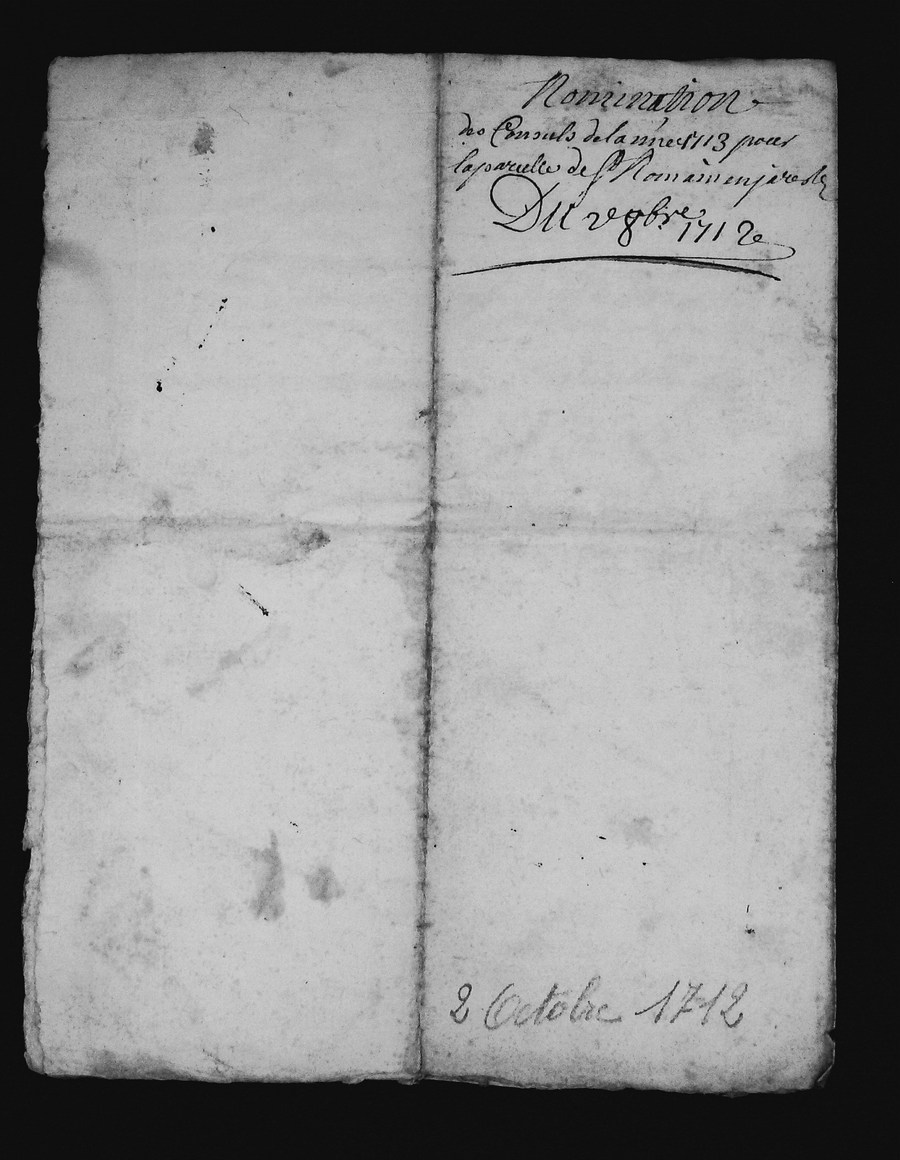 Nomination
des Consuls de lannee 1713 pour
la parcelle de St Romain en jarestz
Du 2e 8bre 1712
2 Octobre 1712